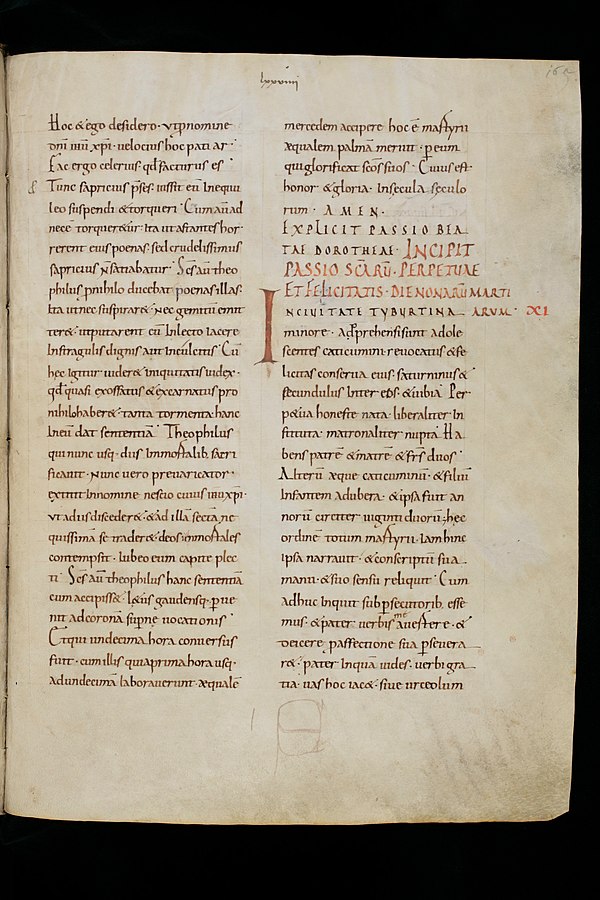 lxxviiii
Hoc & ego desidero · ut pnomine
dnī mei xpi · velocius hoc patiar ·
Fac ergo celerius · qđ facturus es ·
Tunc sapricius p̄ses · iussit eū in equu
leo suspendi & torqueri · Cum aūt ad
necē torquer&ur · Ita ut astantes hor
rerent eius poenas · sed crudelissimus
sapricius n̄ satiabatur · Scs aūt theo
philus p nihilo ducebat poenas illas ·
Ita ut nec suspirar& · nec gemitū emit
ter& · ut putarent eū in lecto iacere
In stragulis dignis aut in culcitis · Cū
hec igitur vider& iniquitatis iudex ·
qđ quasi exossatus & excarnatus pro
nihilo haber& tanta tormenta · hanc
in eū dat sententiā · Theophilus
qui nunc usq · diis inmortalib · sacri
ficavit · Nunc vero prevaricator ·
extitit in nomine nescio cuius ihu xpi ·
ut a diis disceder& · & ad illā sectā ne
quissimā se trader& · & deos inmortales
contempsit · Iubeo eum capite plec
ti · Scs aūt theophilus hanc sententiā
cum accepiss& · l&us gaudensq · perve
nit ad coronā supnę vocationis ·
Et qui undecima hora conversus
fuit · cum illis qui a prima hora usq ·
ad undecimā laboraverunt · æqualē
mercedem accipere hoc ē martyrii
æqualem palmā meruit · p eum
qui glorificat scos suos · Cuius est
honor & gloria · In secula seculo
rum · AMEN ·
EXPLICIT PASSIO BEA
TAE DOROTHEAE · INCIPIT
PASSIO SCARŪ · PERPETUAE
ET FELICITATIS · DIE NONARŪ MARTI
INCIVITATE TYBURTINA ARUM · XI
minore · Adprehensi sunt adole
scentes caticumini · revocatus & fe
licitas conserva eius · saturninus &
secundulus · Inter eos · & iubia Per
p&ua honeste nata · liberaliter in
stituta · matronaliter nupta · Ha
bens patrē & matrē & frs duos ·
Alterū æque caticuminū · & filiū
infantem ad ubera · & ipsa fuit an
norū circiter viginti duorū · hęc
ordinē totum martyrii iam hinc
ipsa narravit · & conscriptū sua
manu · & suo sensu reliquit · Cum
adhuc inquit sub psecutorib · esse
mus · & pater verbis me avertere · &
deicere p affectione sua psevera
r& · pater inquā vides · verbi gra
tia · vas hoc iac& · sive urceolum